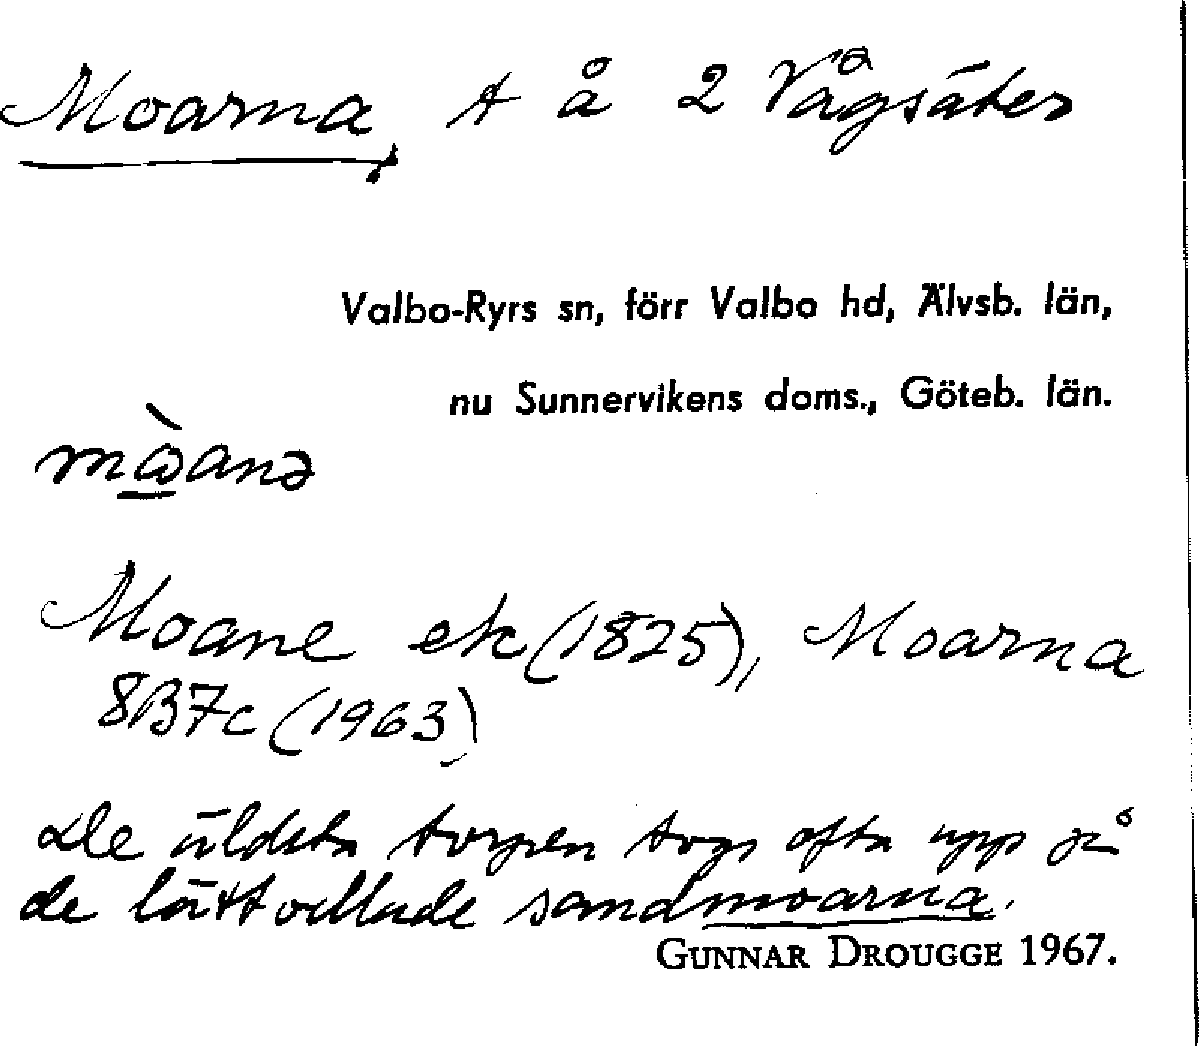 Moarna, t å 2 Vågsäter
Valbo-Ryrs sn, förr Valbo hd, Älvsb. län,
nu Sunnervikens doms., Göteb. län.
Moane ek (1825), Moarna
8B7c (1963)
De äldsta torpen togs ofta upp på
de lättodlade sandmoarna.
GUNNAR DROUGGE 1967.